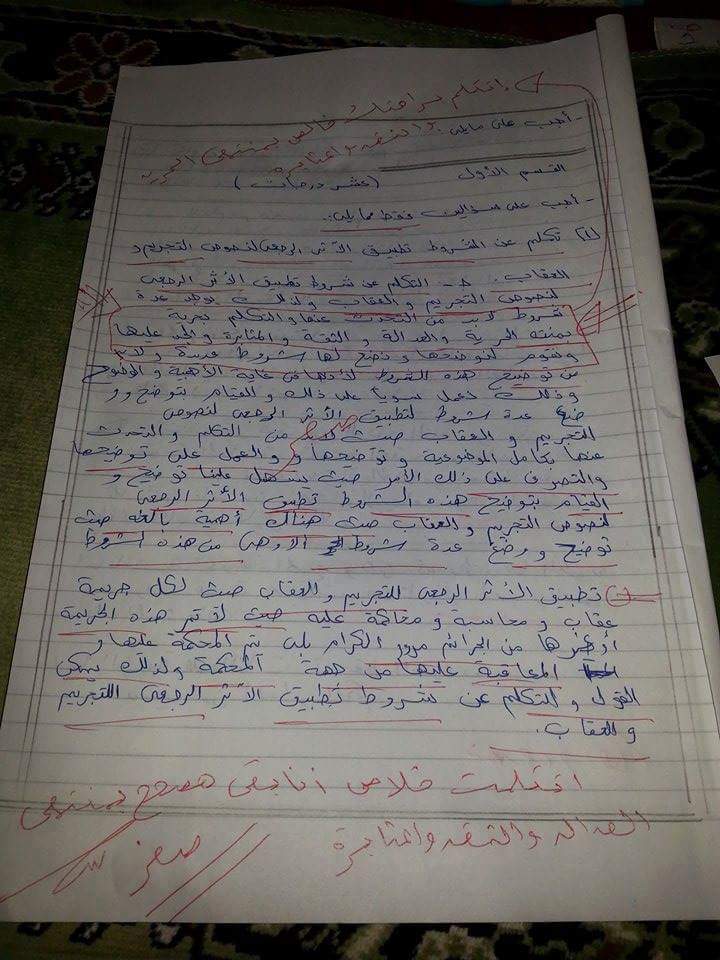 اتكلم براحتك خالص بمنتهى الحرية
والثقة والمثابرة
- أجب على مايلى :-
القسم الأول (عشر درجات)
- أجب على سؤالين فقط مما يلى :-
(١) تكلم عن الشروط تطبيق الأثر الرجعى لنصوص التجريم و
العقاب. ج- التكلم عن شروط تطبيق الأثر الرجعى
لنصوص التجريم والعقاب ولذلك يوجد عدة
شروط لابد من التحدث عنها والتكلم بحرية
بمنتهى الحرية والعدالة والثقة والمثابرة والجد عليها
ونقوم لتوضيحها ونضع لها شروط عديدة ولابد
من توضيح هذه الشروط لأنها فى غاية الأهمية والوضوح
وذلك نعمل سوياً على ذلك والقيام بتوضيح و
ضع عدة شروط لتطبيق الأثر الرجعى لنصوص
التجريم والعقاب حيث لابد من التكلم والتحدث
عنها بكامل الموضوعية وتوضيحها والعمل على توضيحها
والتصرف على ذلك الأمر حيث يسهل علينا توضيح و
القيام بتوضيح هذه الشروط تطبيق الأثر الرجعى
لنصوص التجريم والعقاب حيث هناك أهمية بالغه حيث
توضيح ووضع عدة شروط الأوهى من هذه الشروط
تطبيق الأثر الرجعى للتجريم والعقاب حيث لكل جريمة
عقاب ومحاسبة ومحاكمة عليه حيث لا تمر هذه الجريمة
أو غيرها من الجرائم مرور الكرام بل يتم المحكمة عليها و
المعاقبة عليها من جهة المحكمة ولذلك يمكن
القول والتكلم عن شروط تطبيق الأثر الرجعى للتجريم
والعقاب.
اتكلمت خلاص انا بقى هصحح بمنتهى
العداله والثقه والمثابرة
صفر